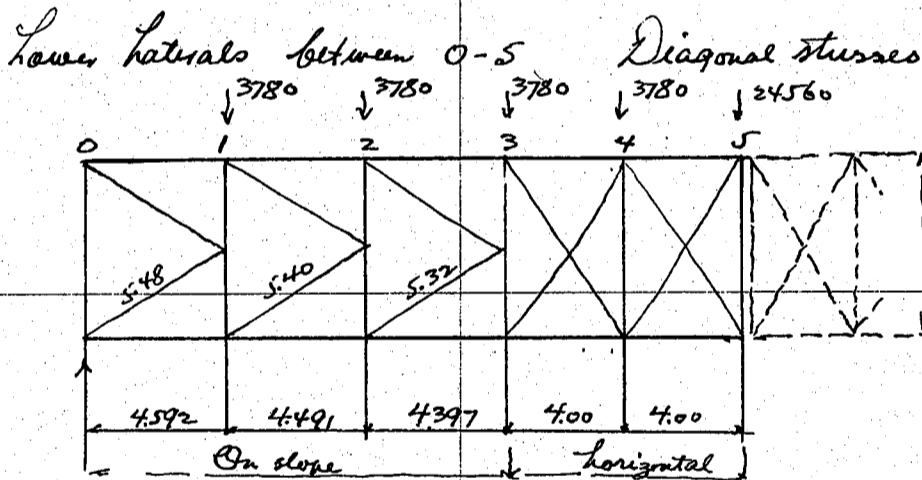 Lower Laterals between 0-5 Diagonal stresses
3780 3780 3780 3780 24560
0 1 2 3 4 5
5.48 5.40 5.32
4.592 4.491 4.397 4.00 4.00
On slope horizontal